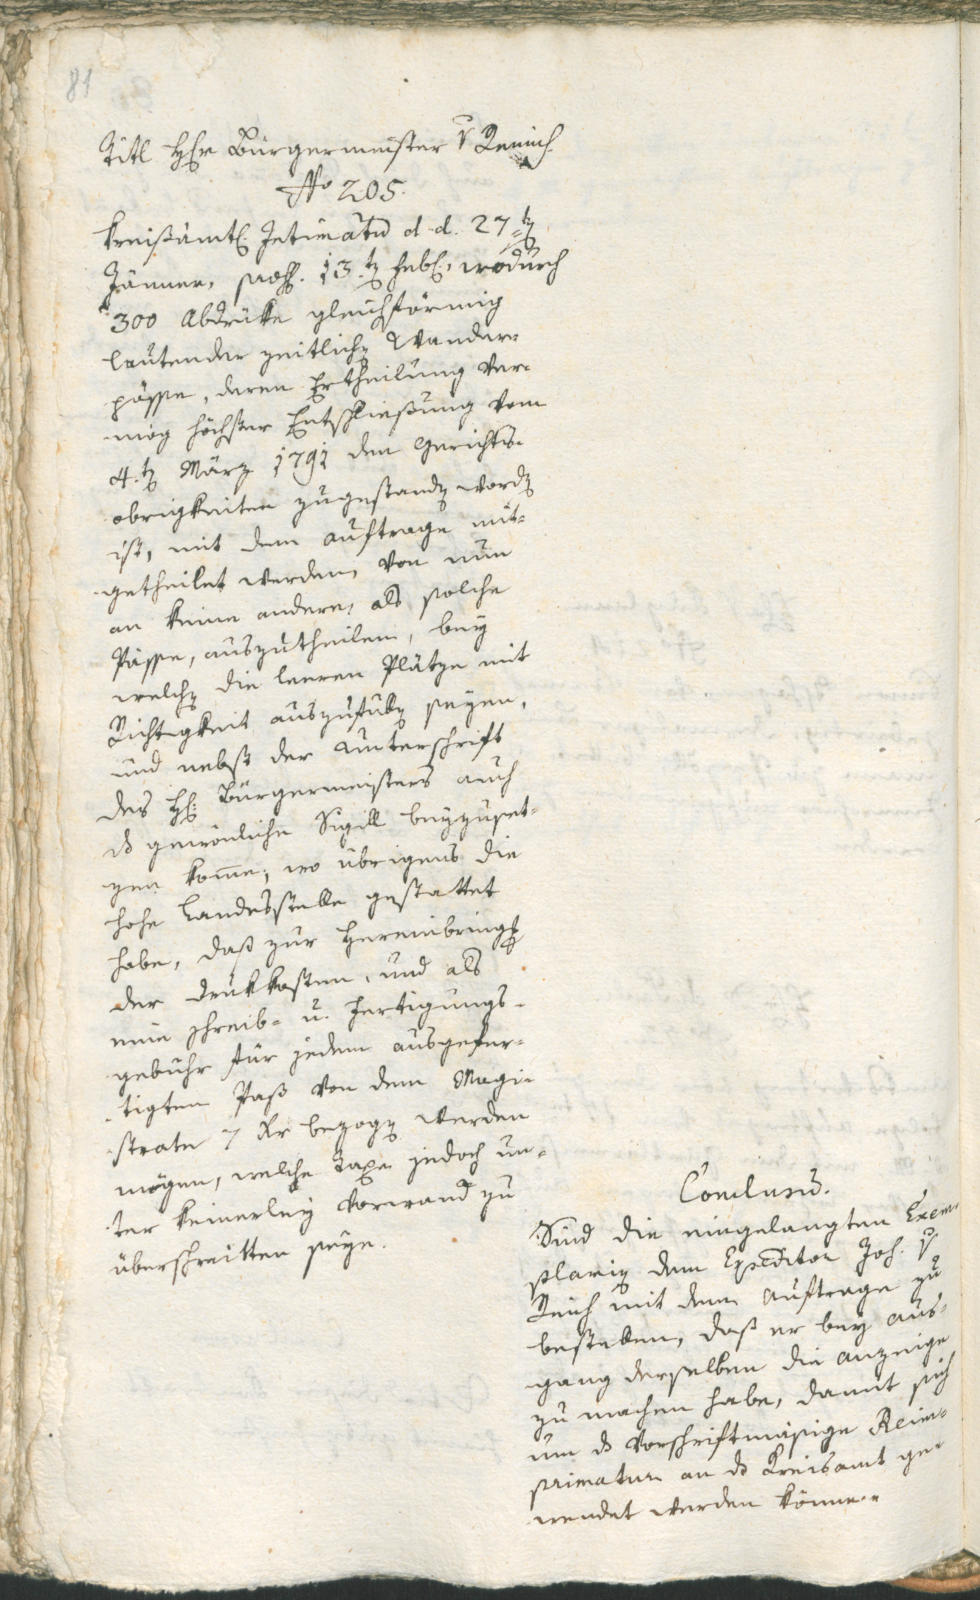 81
Titl Hh Bürgermeister v Remich
No 205.
Kreißämtl Intimatum d. d. 27t
Jänner, 13t hebl, wodurch
300 Abdrücke gleichförmig
lautender zeitlichen Wander-
pässe, deren Ertheilung ver-
mög höchster Entschließung vom
4.t März 1791 den Gerichts-
obrigkeiten zugestanden worden
ist, mit dem auftrage mit-
getheilet werden, von nun
an keine andere, als solche
Pässe, auszutheilen, bey
welchen die leeren Plätze mit
Richtigkeit auszufüllen seyen,
und nebst der Unterschrift
des H: Bürgermeisters auch
ds gewönliche Sigill beyzuset-
zen komme, wo übrigens die
hohe Landesstelle gestattet
habe, daß zur Hereinbringung
der Drukkosten, und als
eine schreib- u. Fertigungs-
gebühr für jeden ausgefer-
tigten Paß von dem Magi-
strate 7 Kr bezogen werden
mögen, welche Taxe jedoch un-
ter keinerley Vorwand zu
überschreitten seye.
Conclusum.
Sind die eingelangten Exem-
plarien dem Expeditor Joh. v
Reich mit dem Auftrage zu
bestellen, daß er bey Aus-
gang derselben die Anzeige
zu machen habe, damit sich
um ds vorschriftmäsige Reim-
primatum an ds Kreisamt ge-
wendet werden könne.